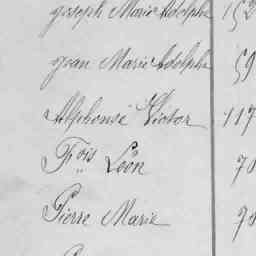 Joseph Marie Adolphe 152
Jean Marie Adolphe 59
Alphonse Victor 117
Fois Léon 70
Pierre Marie